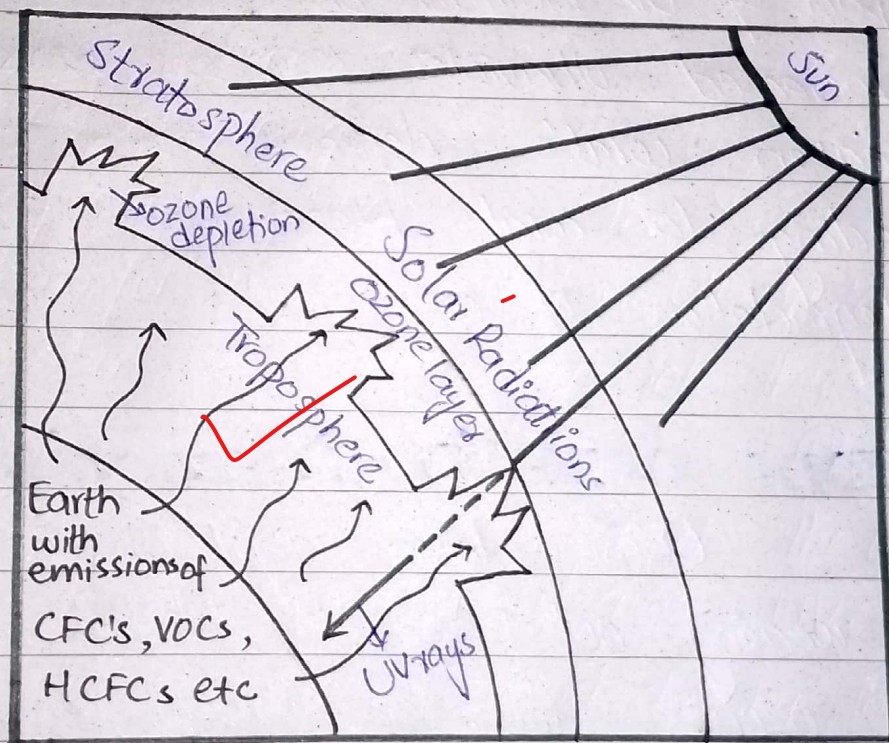 Sun
Stratosphere
ozone
depletion
Solar Radiations
Ozone layer
Troposphere
Earth
with
emissions of
CFC's, VOCs,
HCFCs etc
UV rays